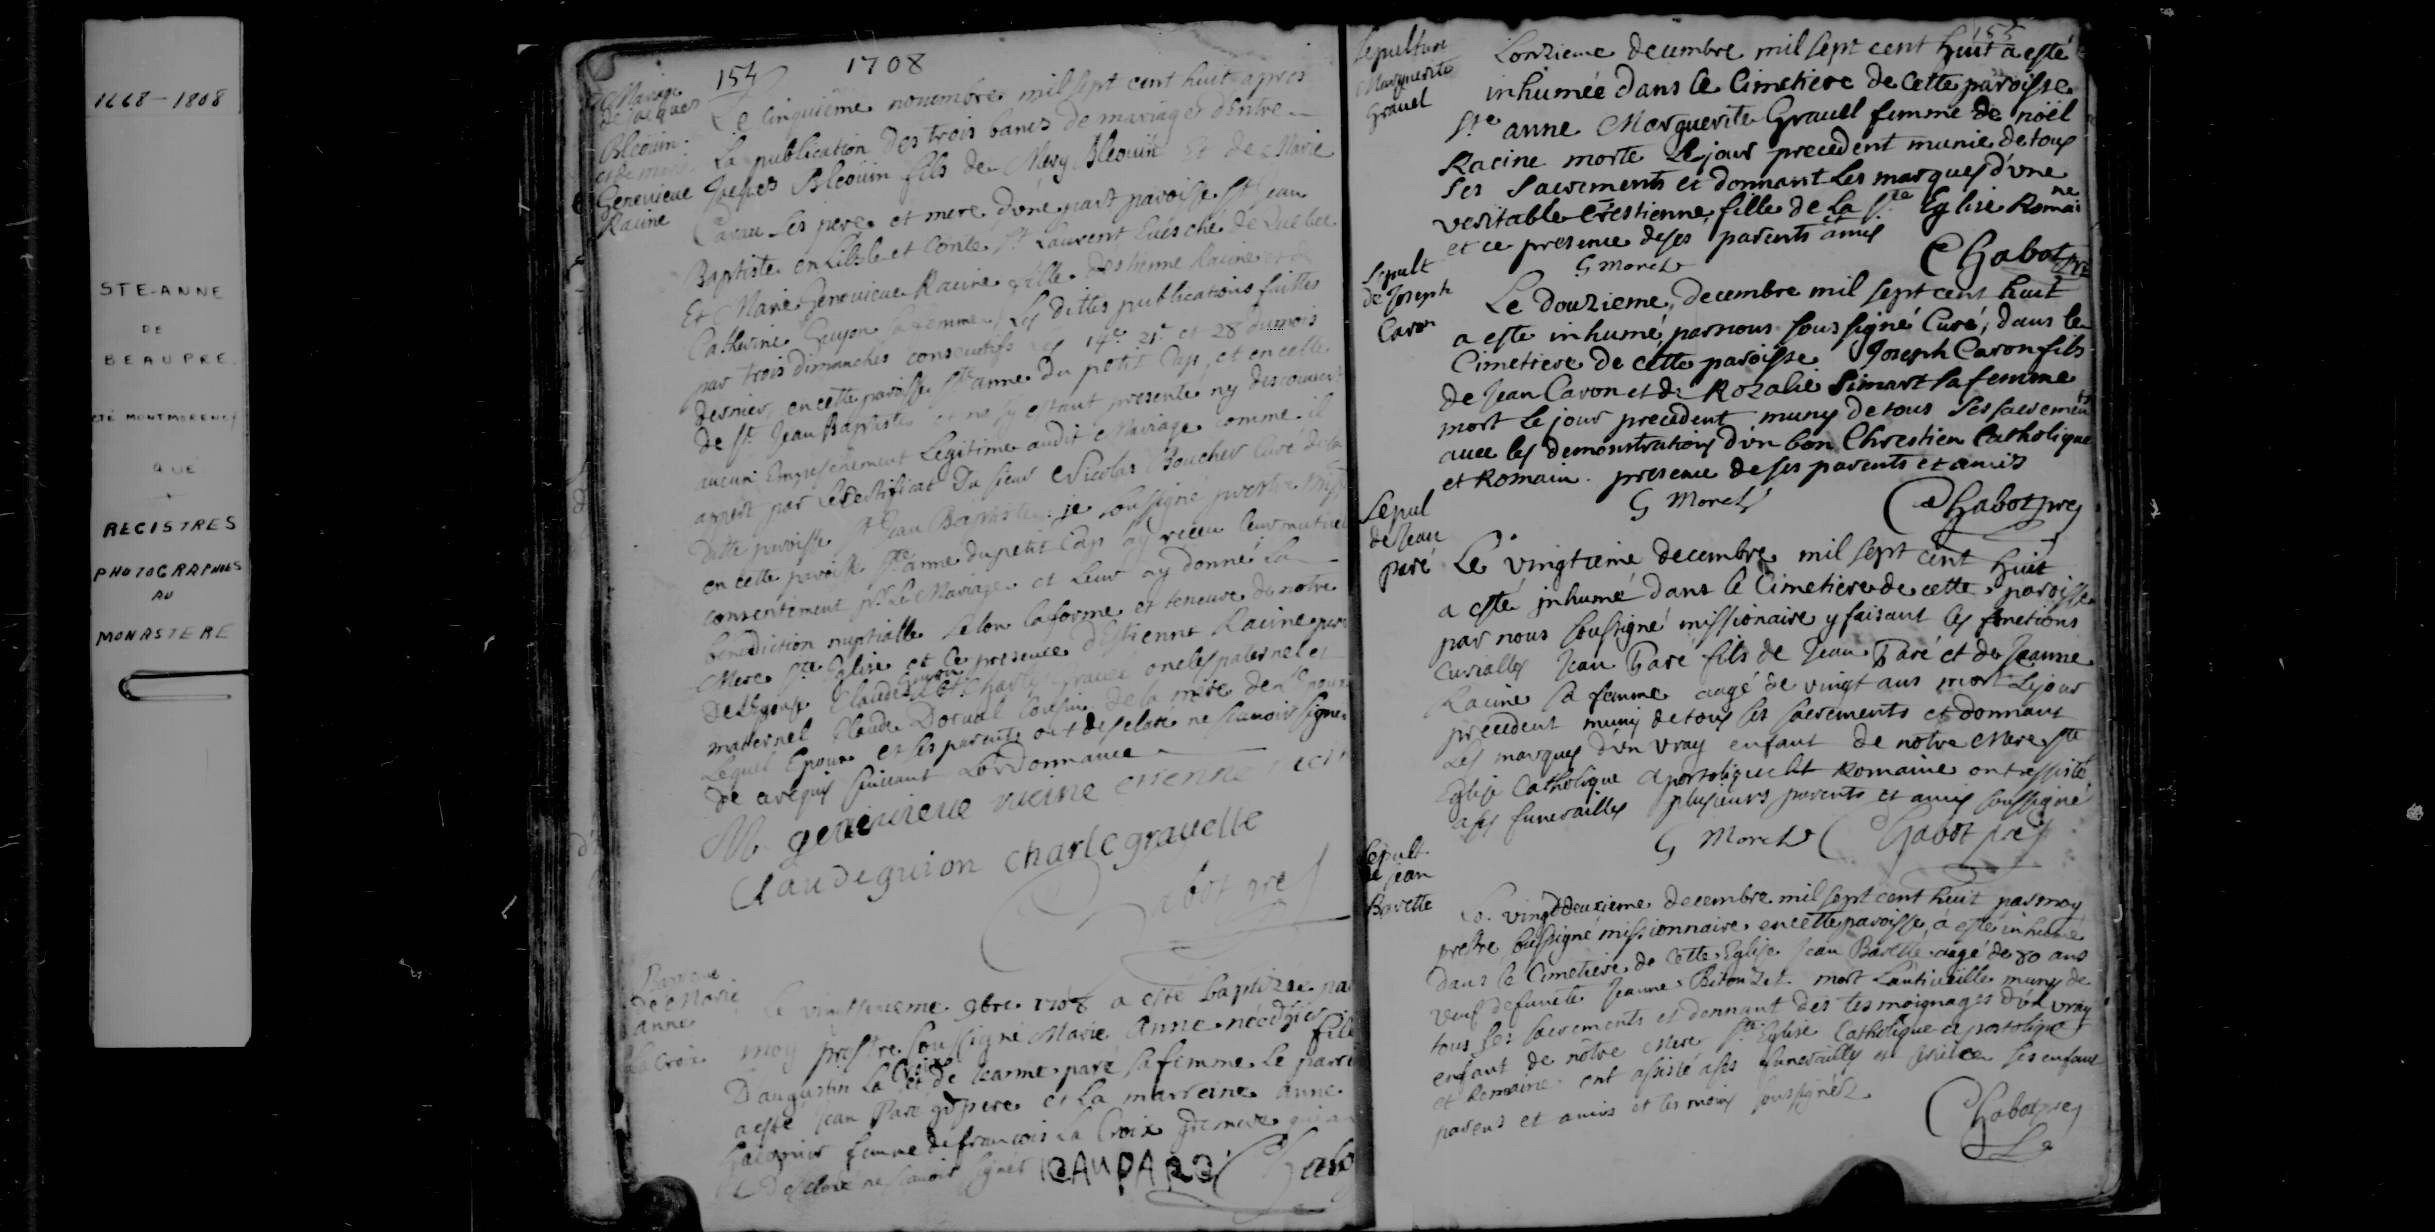 1668-1808
STE-ANNE
DE
BEAUPRE
CTÉ MONTMORENCY
QUÉ
REGISTRES
PHOTOGRAPHIES
AU
MONASTERE
154
1708
Mariage
de jacques
Bleoüin
et de marie
Genevieue
Racine
Le Cinquiéme nouembre mil sept cent huit apres
La publication des trois bancs de mariage d'entre
Jacques Bleoüin fils de Mery Bleoüin et de Marie
Carau ses pere et mere d'vne part paroisse St Jean
Baptiste en L'isle et Conté St Laurent Euesché de Quebec
Et Marie Genevieue Racine fille d'estienne Racine et de
Catherine Guyon sa femme, Les dittes publications faittes
par trois dimanches consecutifs les 14e 21e et 28 du mois
dernier, en cette paroisse Ste anne du petit Cap, et en celle
de St Jean Baptiste et ne s'y estant presenté ny descouuert
aucun Empeschement Legitime audit Mariage comme il
apert par le Certificat du sieur Nicolas Boucher Curé de la
ditte paroisse St Jean Baptiste: je soussigné prestre miss
en cette paroisse Ste anne du petit Cap ay receu leur mutuel
consentement pr Le Mariage et Leur ay donné La
benediction nuptialle selon la forme et teneure de notre
Mere Ste Eglise et ce presence d'Estienne Racine pere
de L'Epouse Claude Guyon et Charles Grauel oncles paternel et
maternel Claude Dorual Cousin de la mere de l'Epouse
Lequel Epoux et ses parents ont desclaré ne scauoir signer
de ce requis suiuant L'ordonnance
M genevieue racine etienne
Claude guion charle grauelle
Chabot pre
Bapteme
de Marie
anne
La Croix
Le vingttieme 9bre 1708 a esté baptizée par
moy prestre soussigné Marie Anne née d'hier fille
D'augustin La Croix et de Jeanne paré sa femme Le parr
a esté Jean Paré gd pere et La marreine Anne
Gasgnier femme de francois La Croix gd mere qui a
Desclaré ne scauoir signer IEAN PARE Chabo
155
Sepulture
Marguerite
Grauel
L'onzieme decembre mil sept cent huit a esté
inhumée dans le Cimetiere de Cette paroisse
Ste anne Marguerite Grauel femme de noël
Racine morte le jour precedent munie de tous
ses sacrements et donnant les marques d'vne
veritable crestienne fille de la Ste Eglise Romaine
et ce presence de ses parents et amis
G Morel
Chabot pre
Sepult
de Joseph
Caron
Le douzieme, decembre mil sept cent huit
a esté inhumé par nous sous signé Curé, dans le
Cimetiere de cette paroisse Joseph Caron fils
de Jean Caron et de Rozalie Simart sa femme
mort le jour precedent, muny de tous ses sacrements
auec les demonstrations d'vn bon Chrestien Catholique
et Romain. presence de ses parents et amis
G Morel
Chabot pre
Sepul
de Jean
paré
Le vingtieme decembre mil sept cent huit
a esté inhumé dans le Cimetiere de cette paroisse
par nous soussigné missionaire y faisant les fonctions
Curialles Jean Paré fils de Jean Paré et de Jeanne
Racine sa femme aagé de vingt ans mort le jour
precedent muny de tous ses sacrements et donnant
Les marques d'vn vray enfant de notre Mere Ste
Eglise Catholique apostolique et Romaine ont assisté
a ses funerailles plusieurs parents et amis soussigné
G Morel Chabot pre
Sepult
de jean
Barette
Le vingtdeuxieme decembre mil sept cent huit par moy
prestre soussigné missionnaire en cette paroisse, a esté inhumé
dans le Cimetiere de Cette Eglise Jean Barette aagé de 80 ans
veuf defuncte Jeanne Bitouzet mort L'antiveille muny de
tous ses sacrements et donnant des tesmoignages d'vn vray
enfant de nôtre Mere Ste Eglise Catholique apostolique
et Romaine ont assisté a ses funerailles ses enfans
parens et amis et tesmoins soussignez
Chabot pre